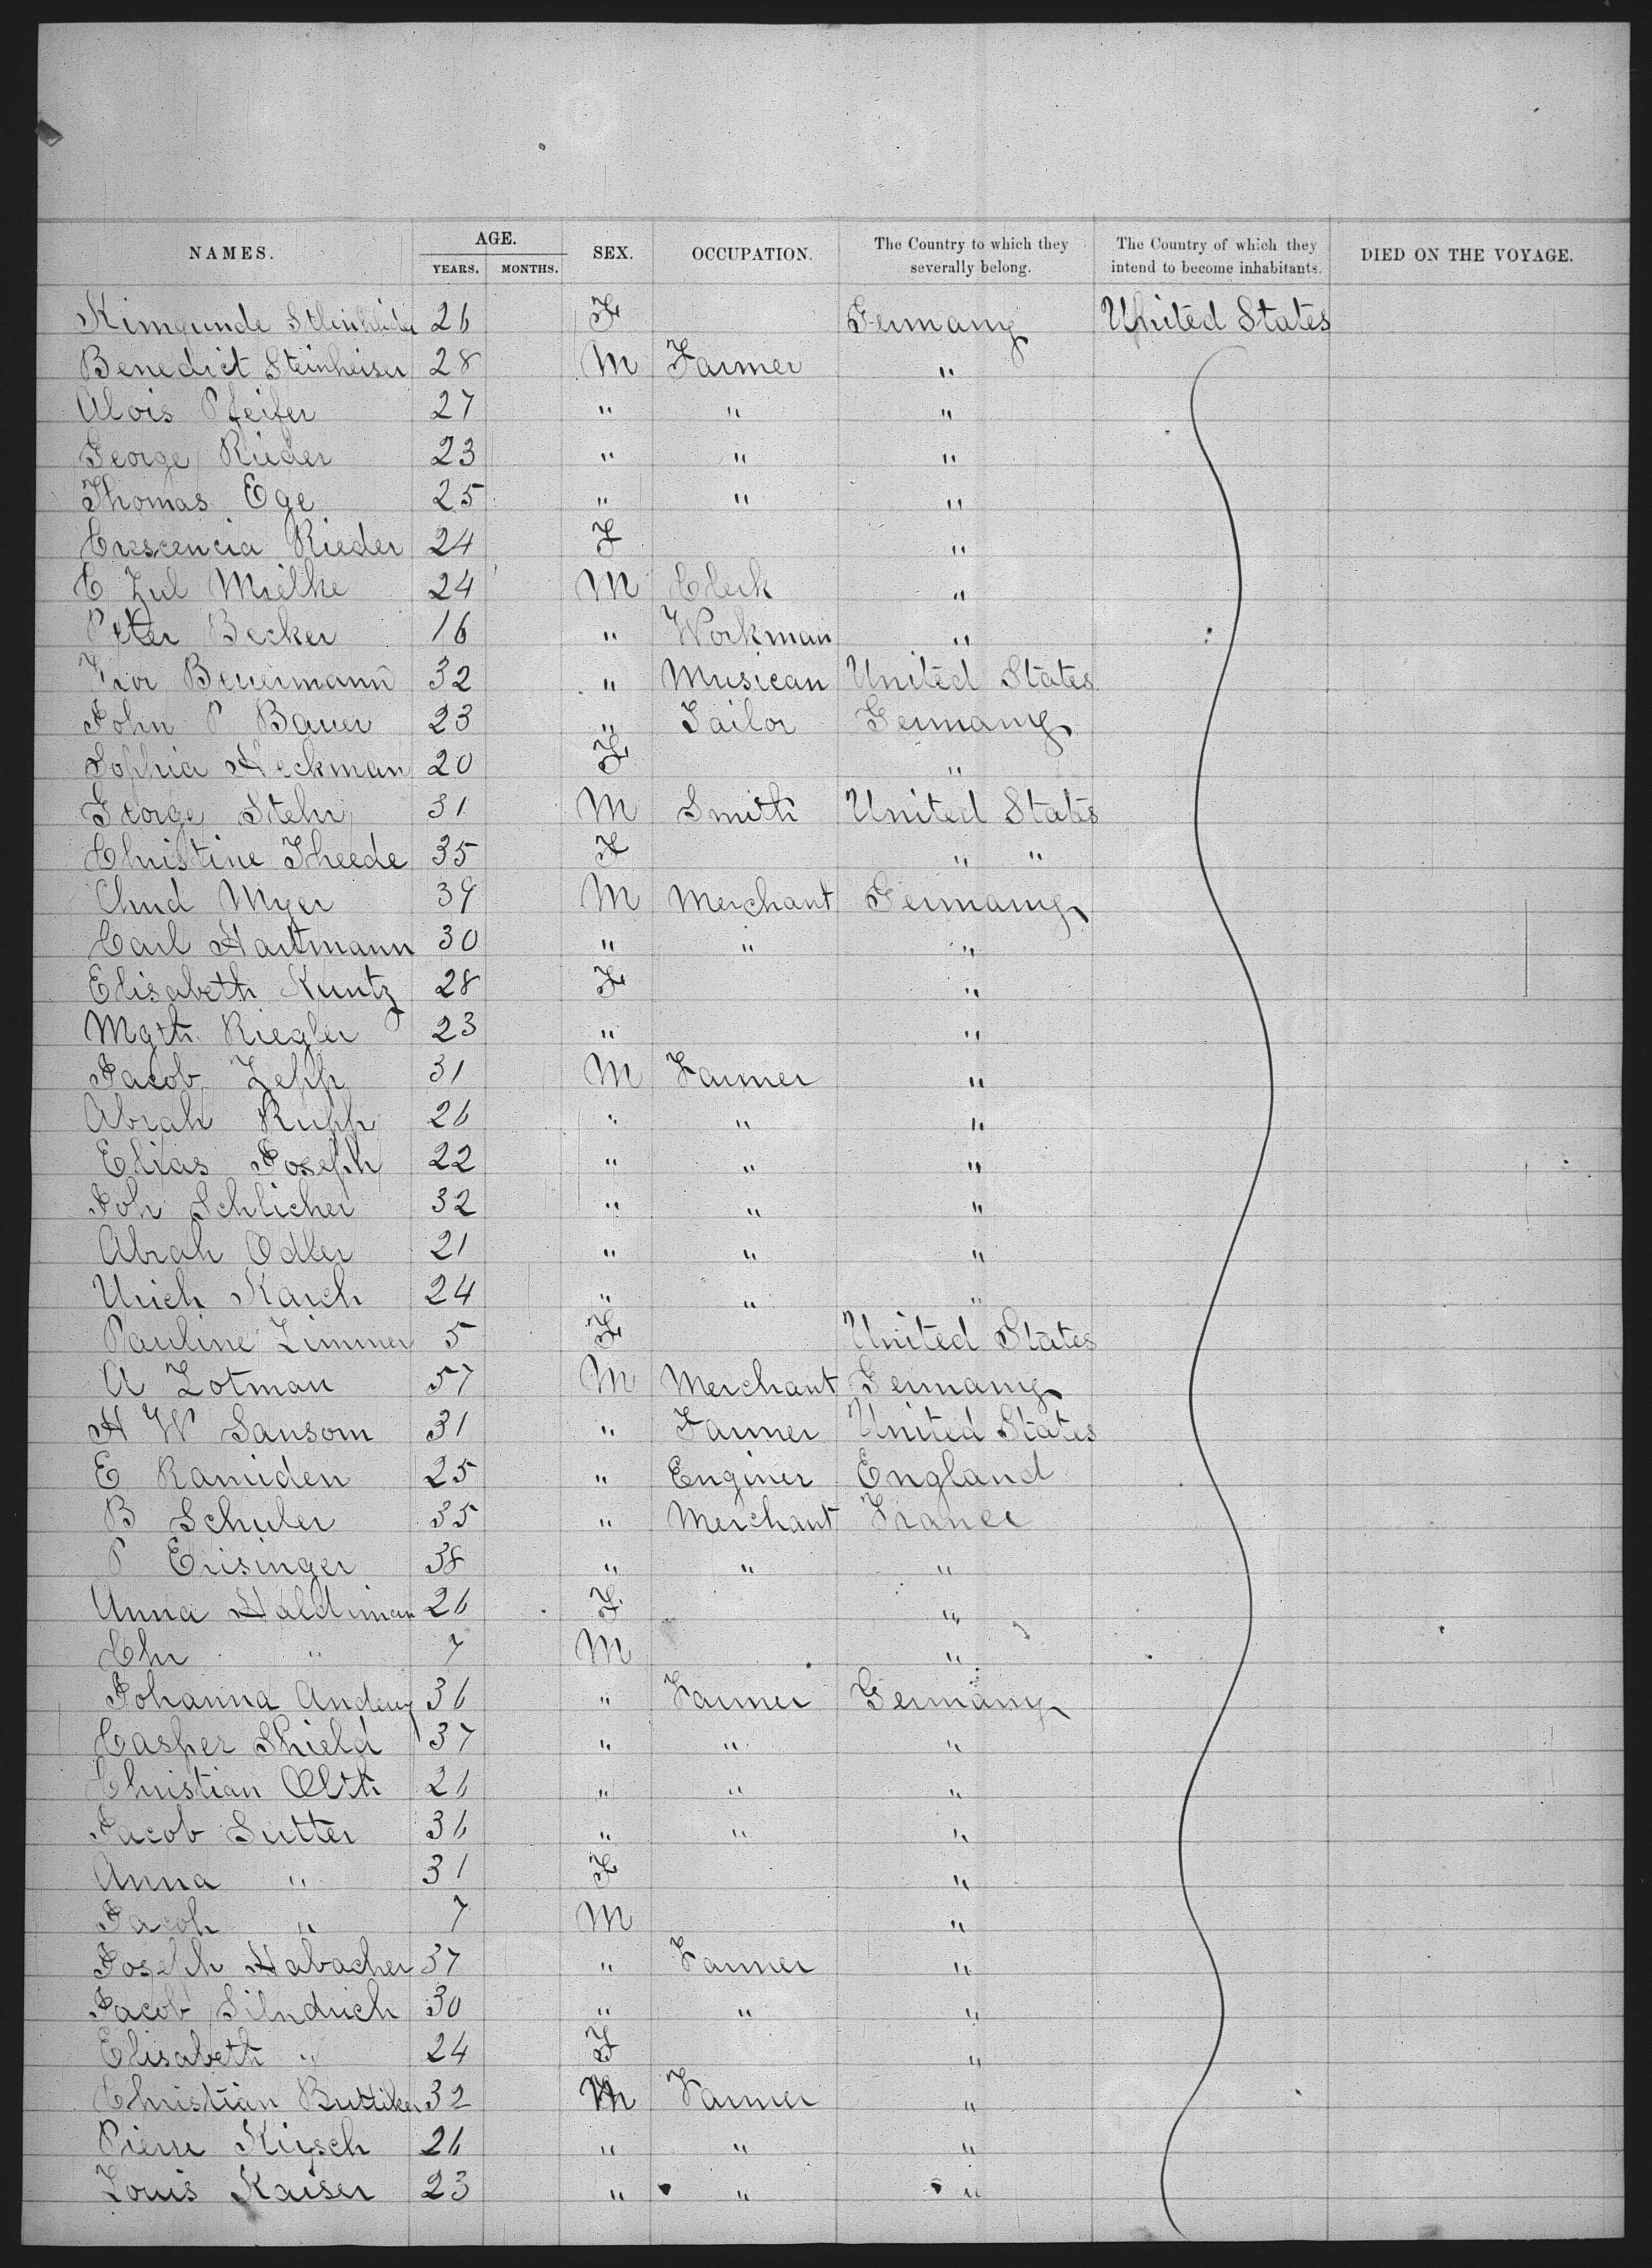 NAMES. AGE. SEX. OCCUPATION. The Country to which they severally belong. The Country of which they intend to become inhabitants. DIED ON THE VOYAGE.
YEARS. MONTHS.
26 F Germany United States
Benedict Steinheiser 28 M Farmer "
Alois Pfeifer 27 " " "
George Rieder 23 " " "
Thomas Ege 25 " " "
Crescencia Rieder 24 F "
C Zul Mielke 24 M Clerk "
Peter Becker 16 " Workman "
32 " Musican United States
John P Bauer 23 " Tailor Germany
Sophia Heckman 20 F "
George Stehr 31 M Smith United States
Christine Theede 35 F " "
Myer 39 M Merchant Germany
Carl Hartmann 30 " " "
Elisabeth Kuntz 28 F "
Mgth. Riegler 23 " "
Jacob Zepp 31 M Farmer "
Abrah Rupp 26 " " "
Elias Joseph 22 " " "
Joh Schlicher 32 " " "
Abrah Odler 21 " " "
Urich Karch 24 " " "
Pauline Zimmer 5 F United States
A Zotman 57 M Merchant Germany
H W Sansom 31 " Farmer United States
E Ramiden 25 " Enginer England
B Schuler 35 " Merchant France
P Erisinger 38 " " "
Anna Haldiman 26 F "
Chr " 7 M "
Johanna 36 " Farmer Germany
Casper Shield 37 " " "
Christian 26 " " "
Jacob Sutter 36 " " "
Anna " 31 F "
Jacob " 7 M "
Joseph Habacher 37 " Farmer "
Jacob 30 " " "
Elisabeth " 24 F "
Christian Buttiker 32 M Farmer "
Pierre Kirsch 26 " " "
Louis Kaiser 23 " " "